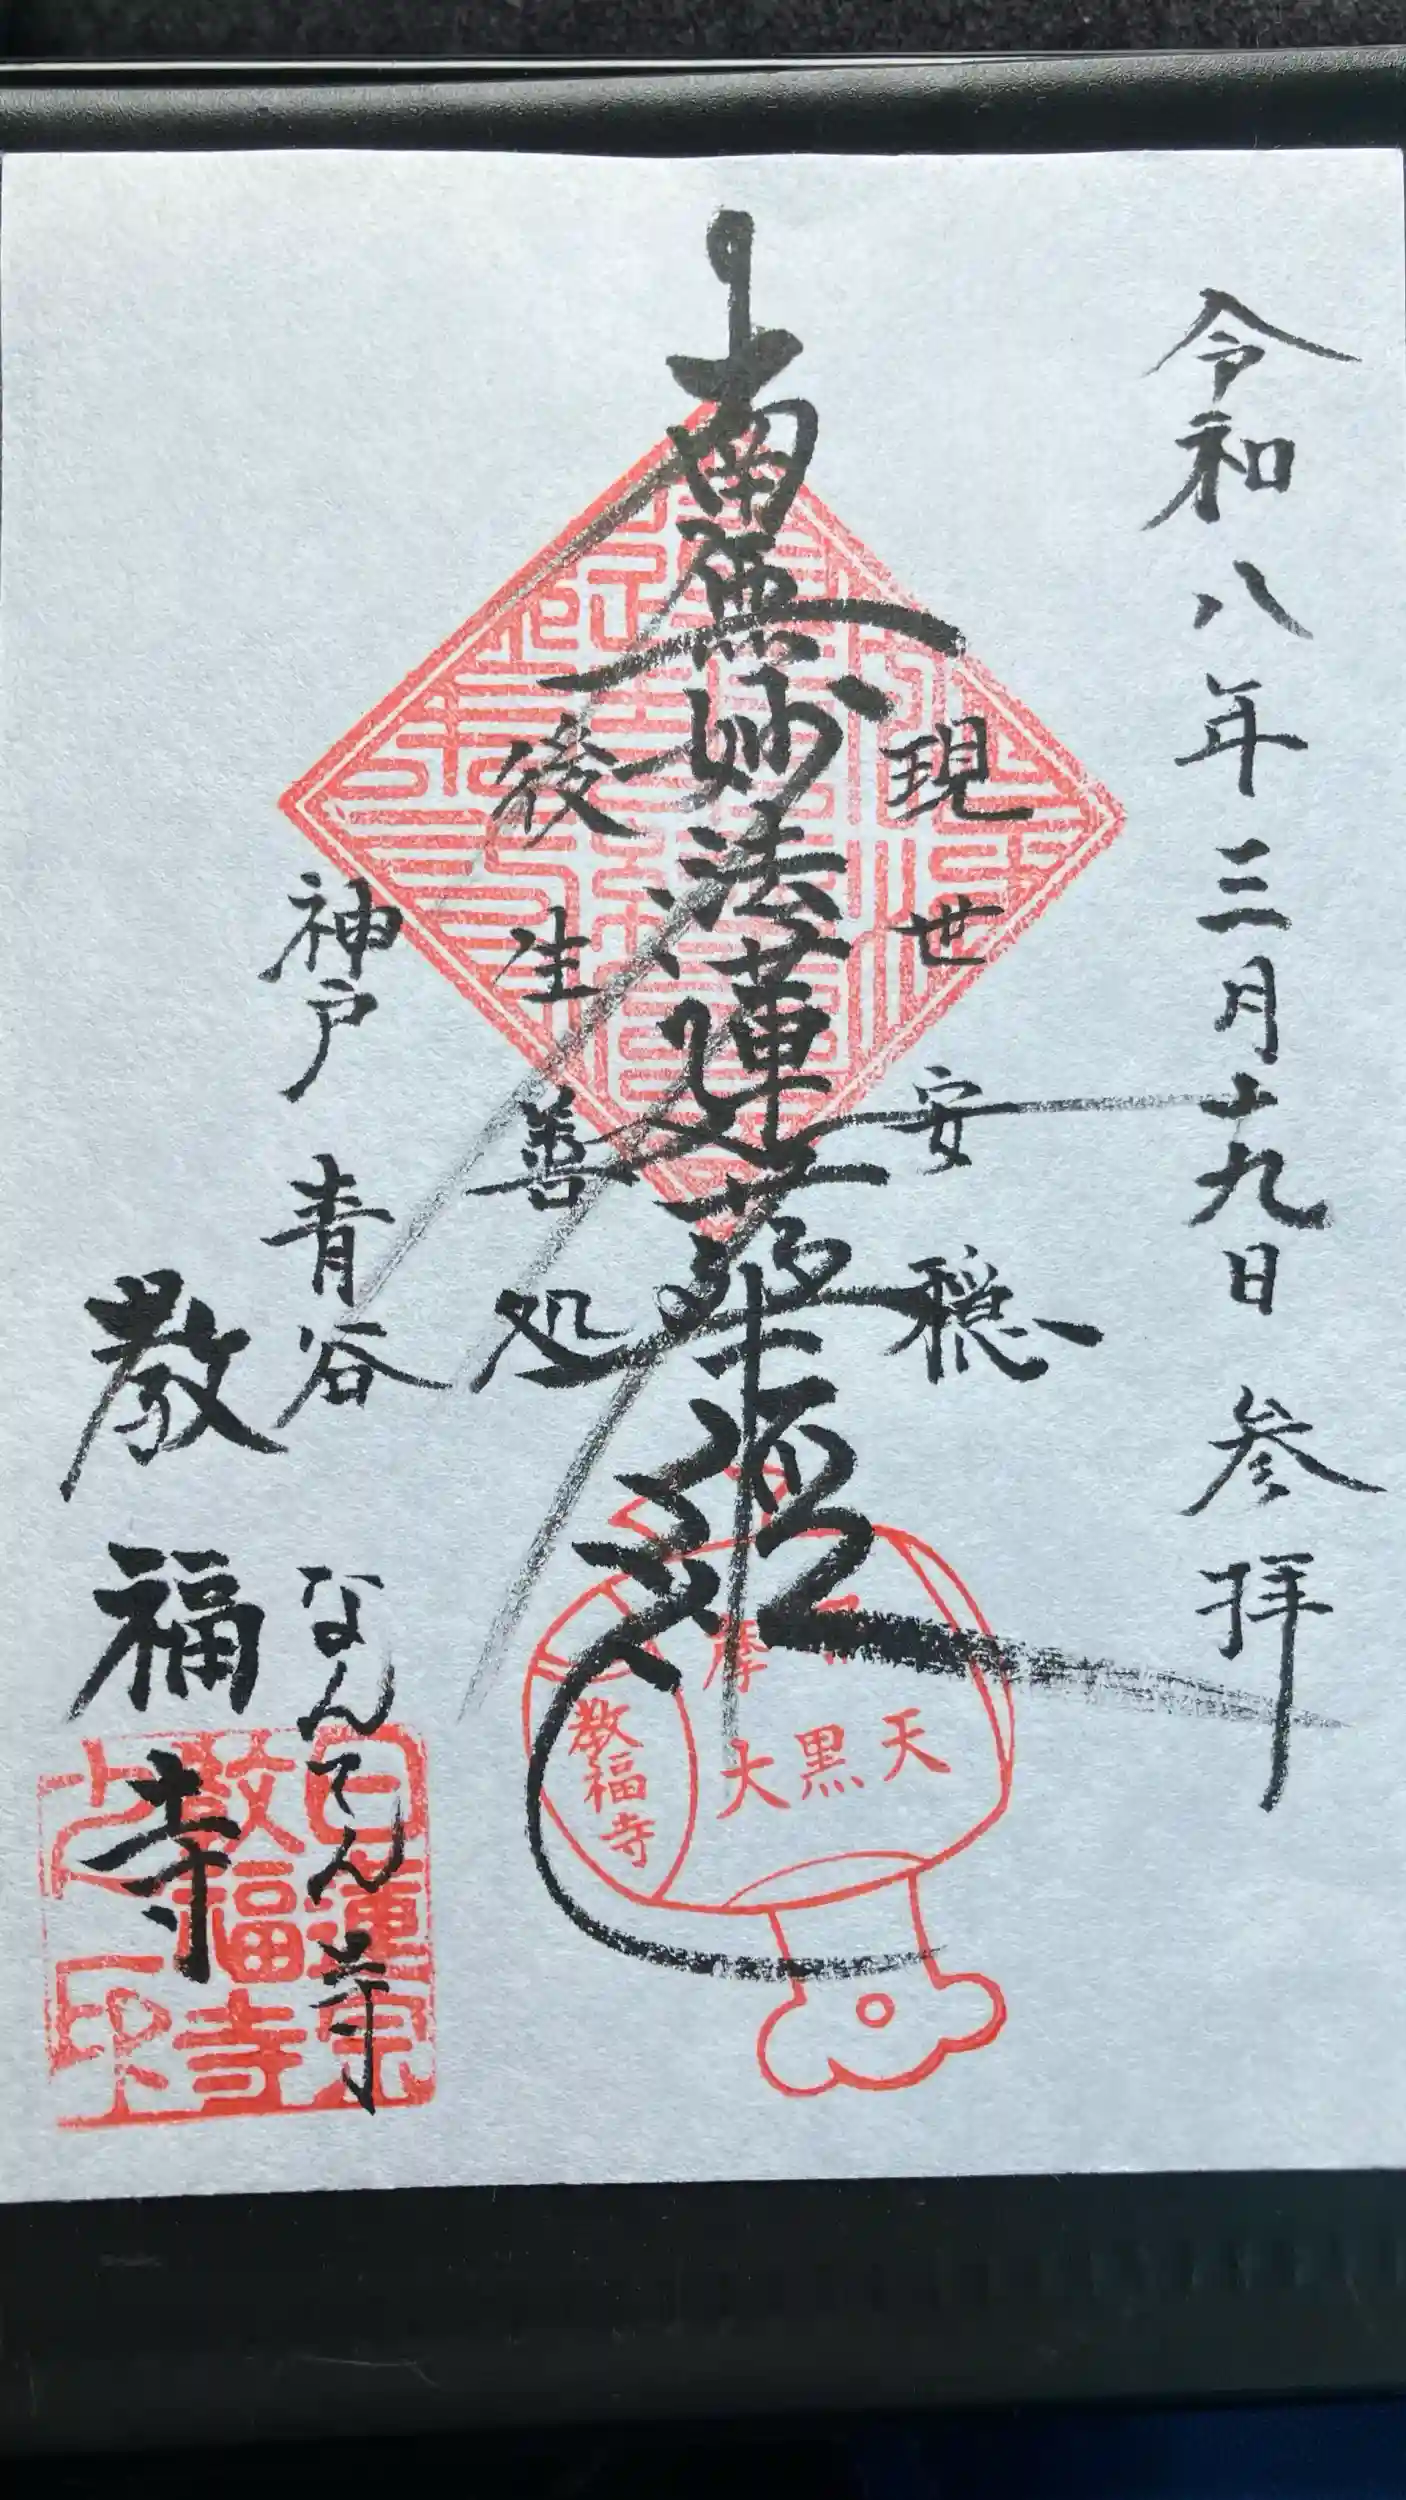 令和八年三月十九日 参拝
現世安穏
南無妙法蓮華経
後生善処
神戸 青谷
なんてん寺
教福寺
摩
大黒天
教福寺
日蓮宗
教福寺
之印